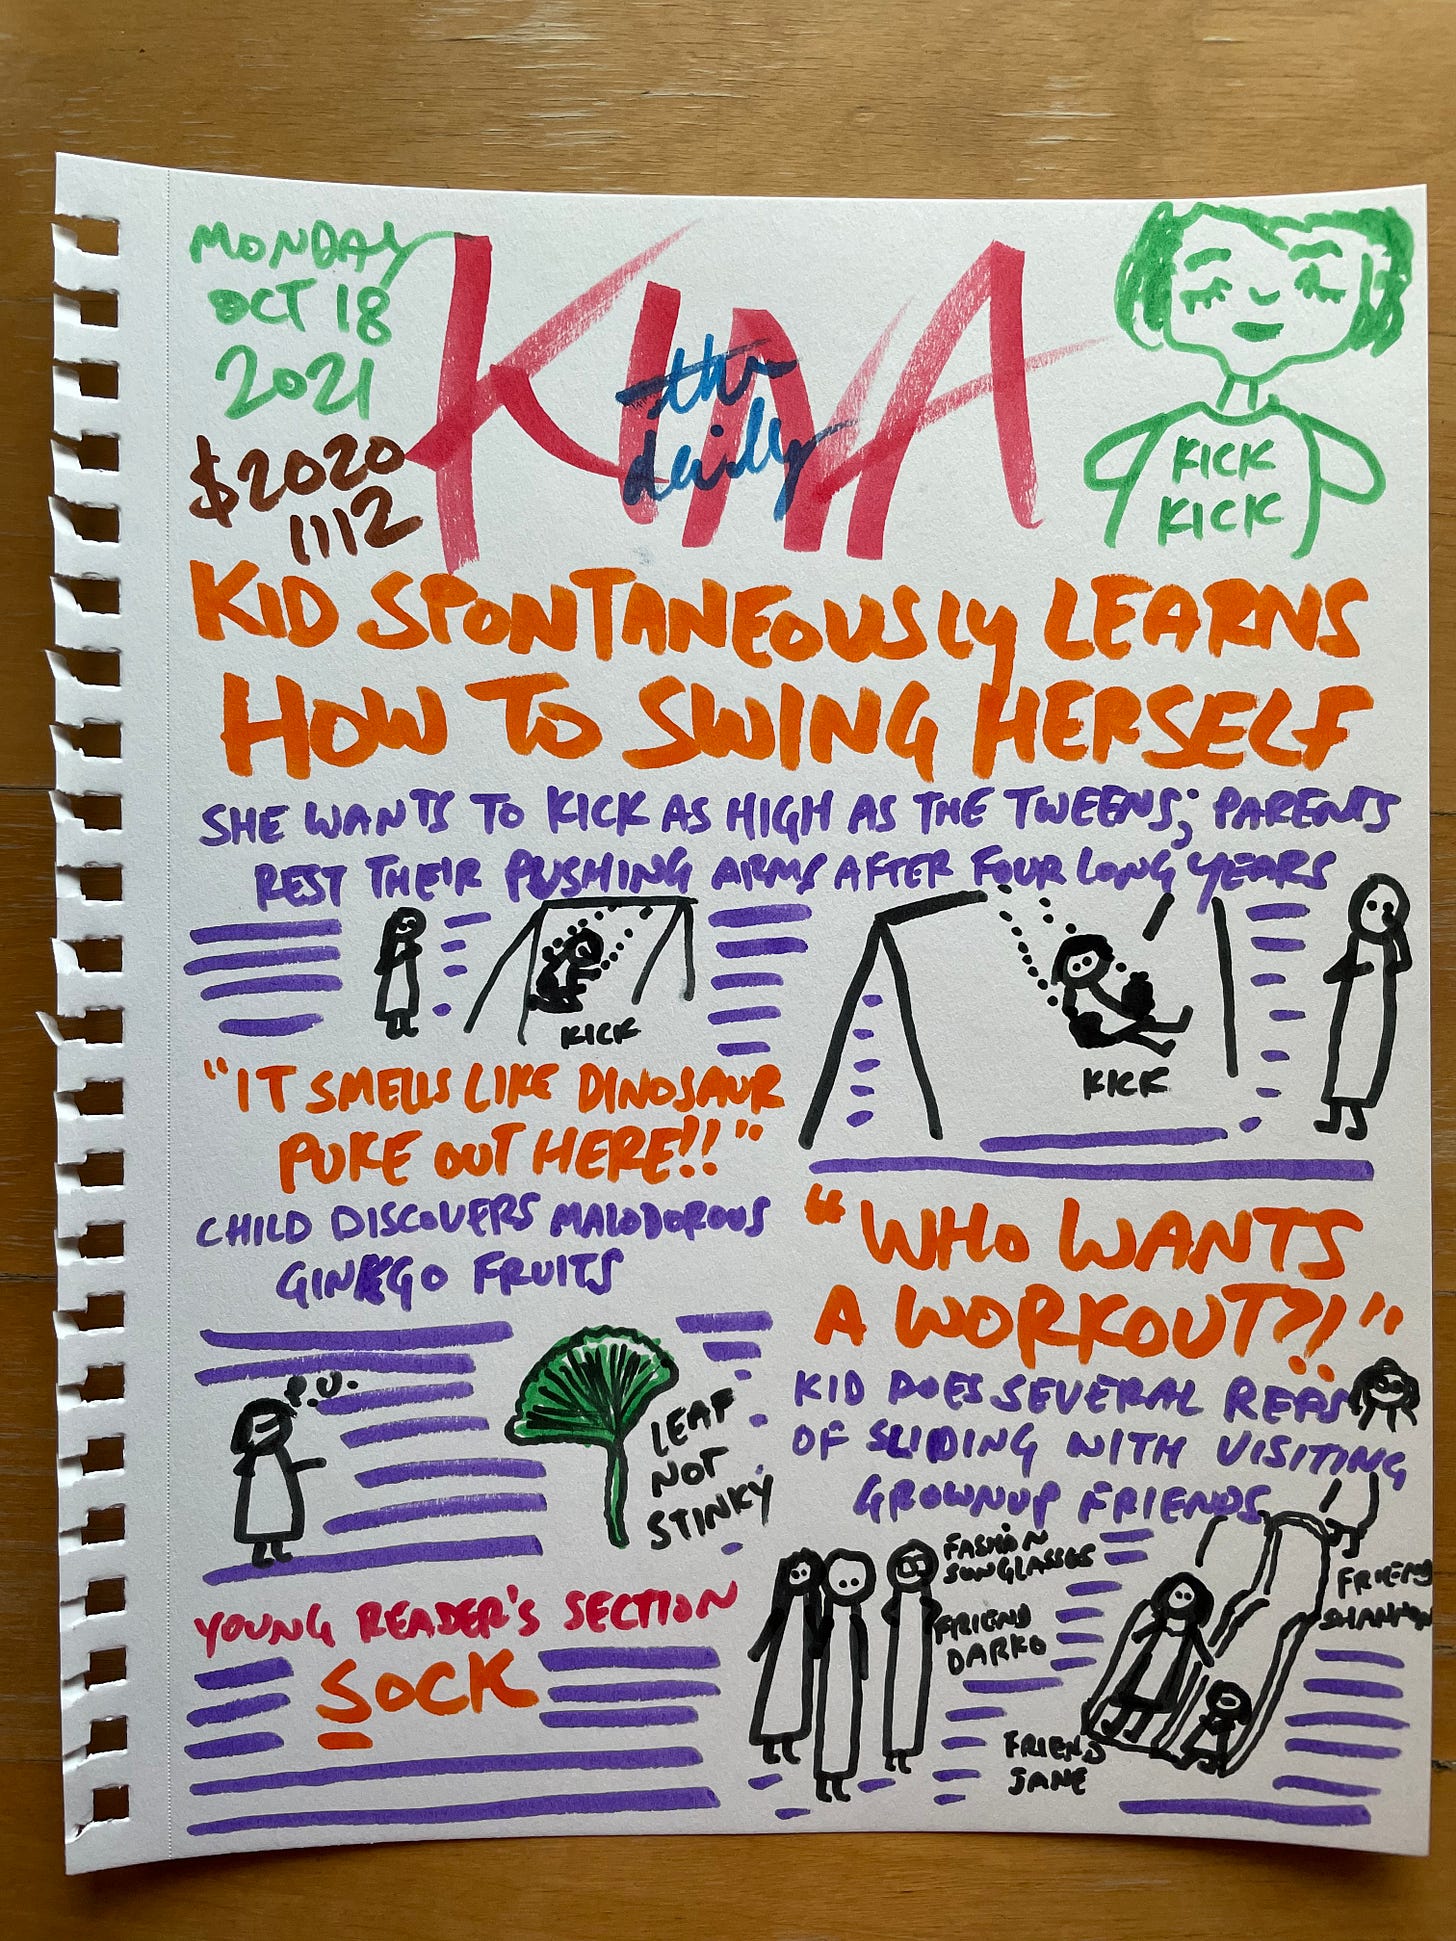 MONDAY
OCT 18
2021
$2020
1112
the
daily
KINA
KICK
KICK
KID SPONTANEOUSLY LEARNS
HOW TO SWING HERSELF
SHE WANTS TO KICK AS HIGH AS THE TWEENS; PARENTS
REST THEIR PUSHING ARMS AFTER FOUR LONG YEARS
KICK
KICK
"IT SMELLS LIKE DINOSAUR
PUKE OUT HERE!!"
CHILD DISCOVERS MALODOROUS
GINKGO FRUITS
P.U.
LEAF
NOT
STINKY
"WHO WANTS
A WORKOUT?!"
KID DOES SEVERAL REPS
OF SLIDING WITH VISITING
GROWNUP FRIENDS
FASHION
SUNGLASSES
FRIEND
DARKO
FRIEND
SHANNON
FRIEND
JANE
YOUNG READER'S SECTION
SOCK